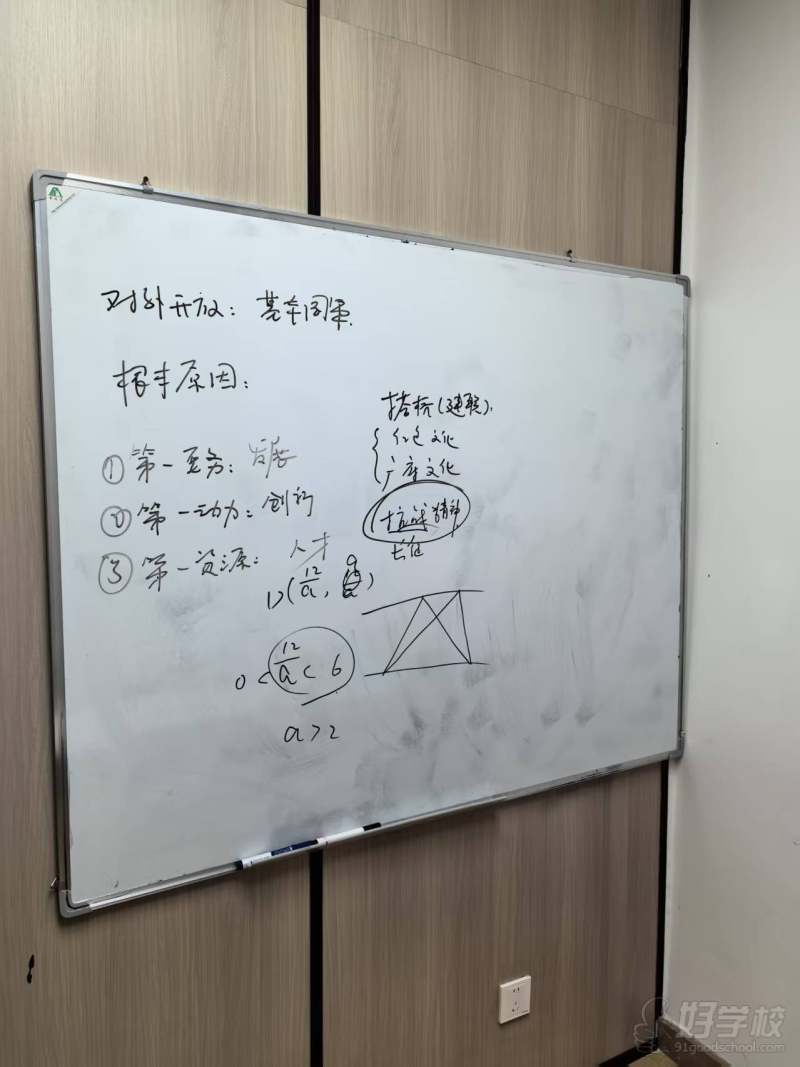 对外开放：基本国策.
根本原因：
①第一要务：发展
②第一动力：创新
③第一资源：人才
搭桥(建联).
红色文化
广府文化
抗战精神
长征
D(12/a, a)
0 < 12/a < 6
a > 2
好学校
91goodschool.com